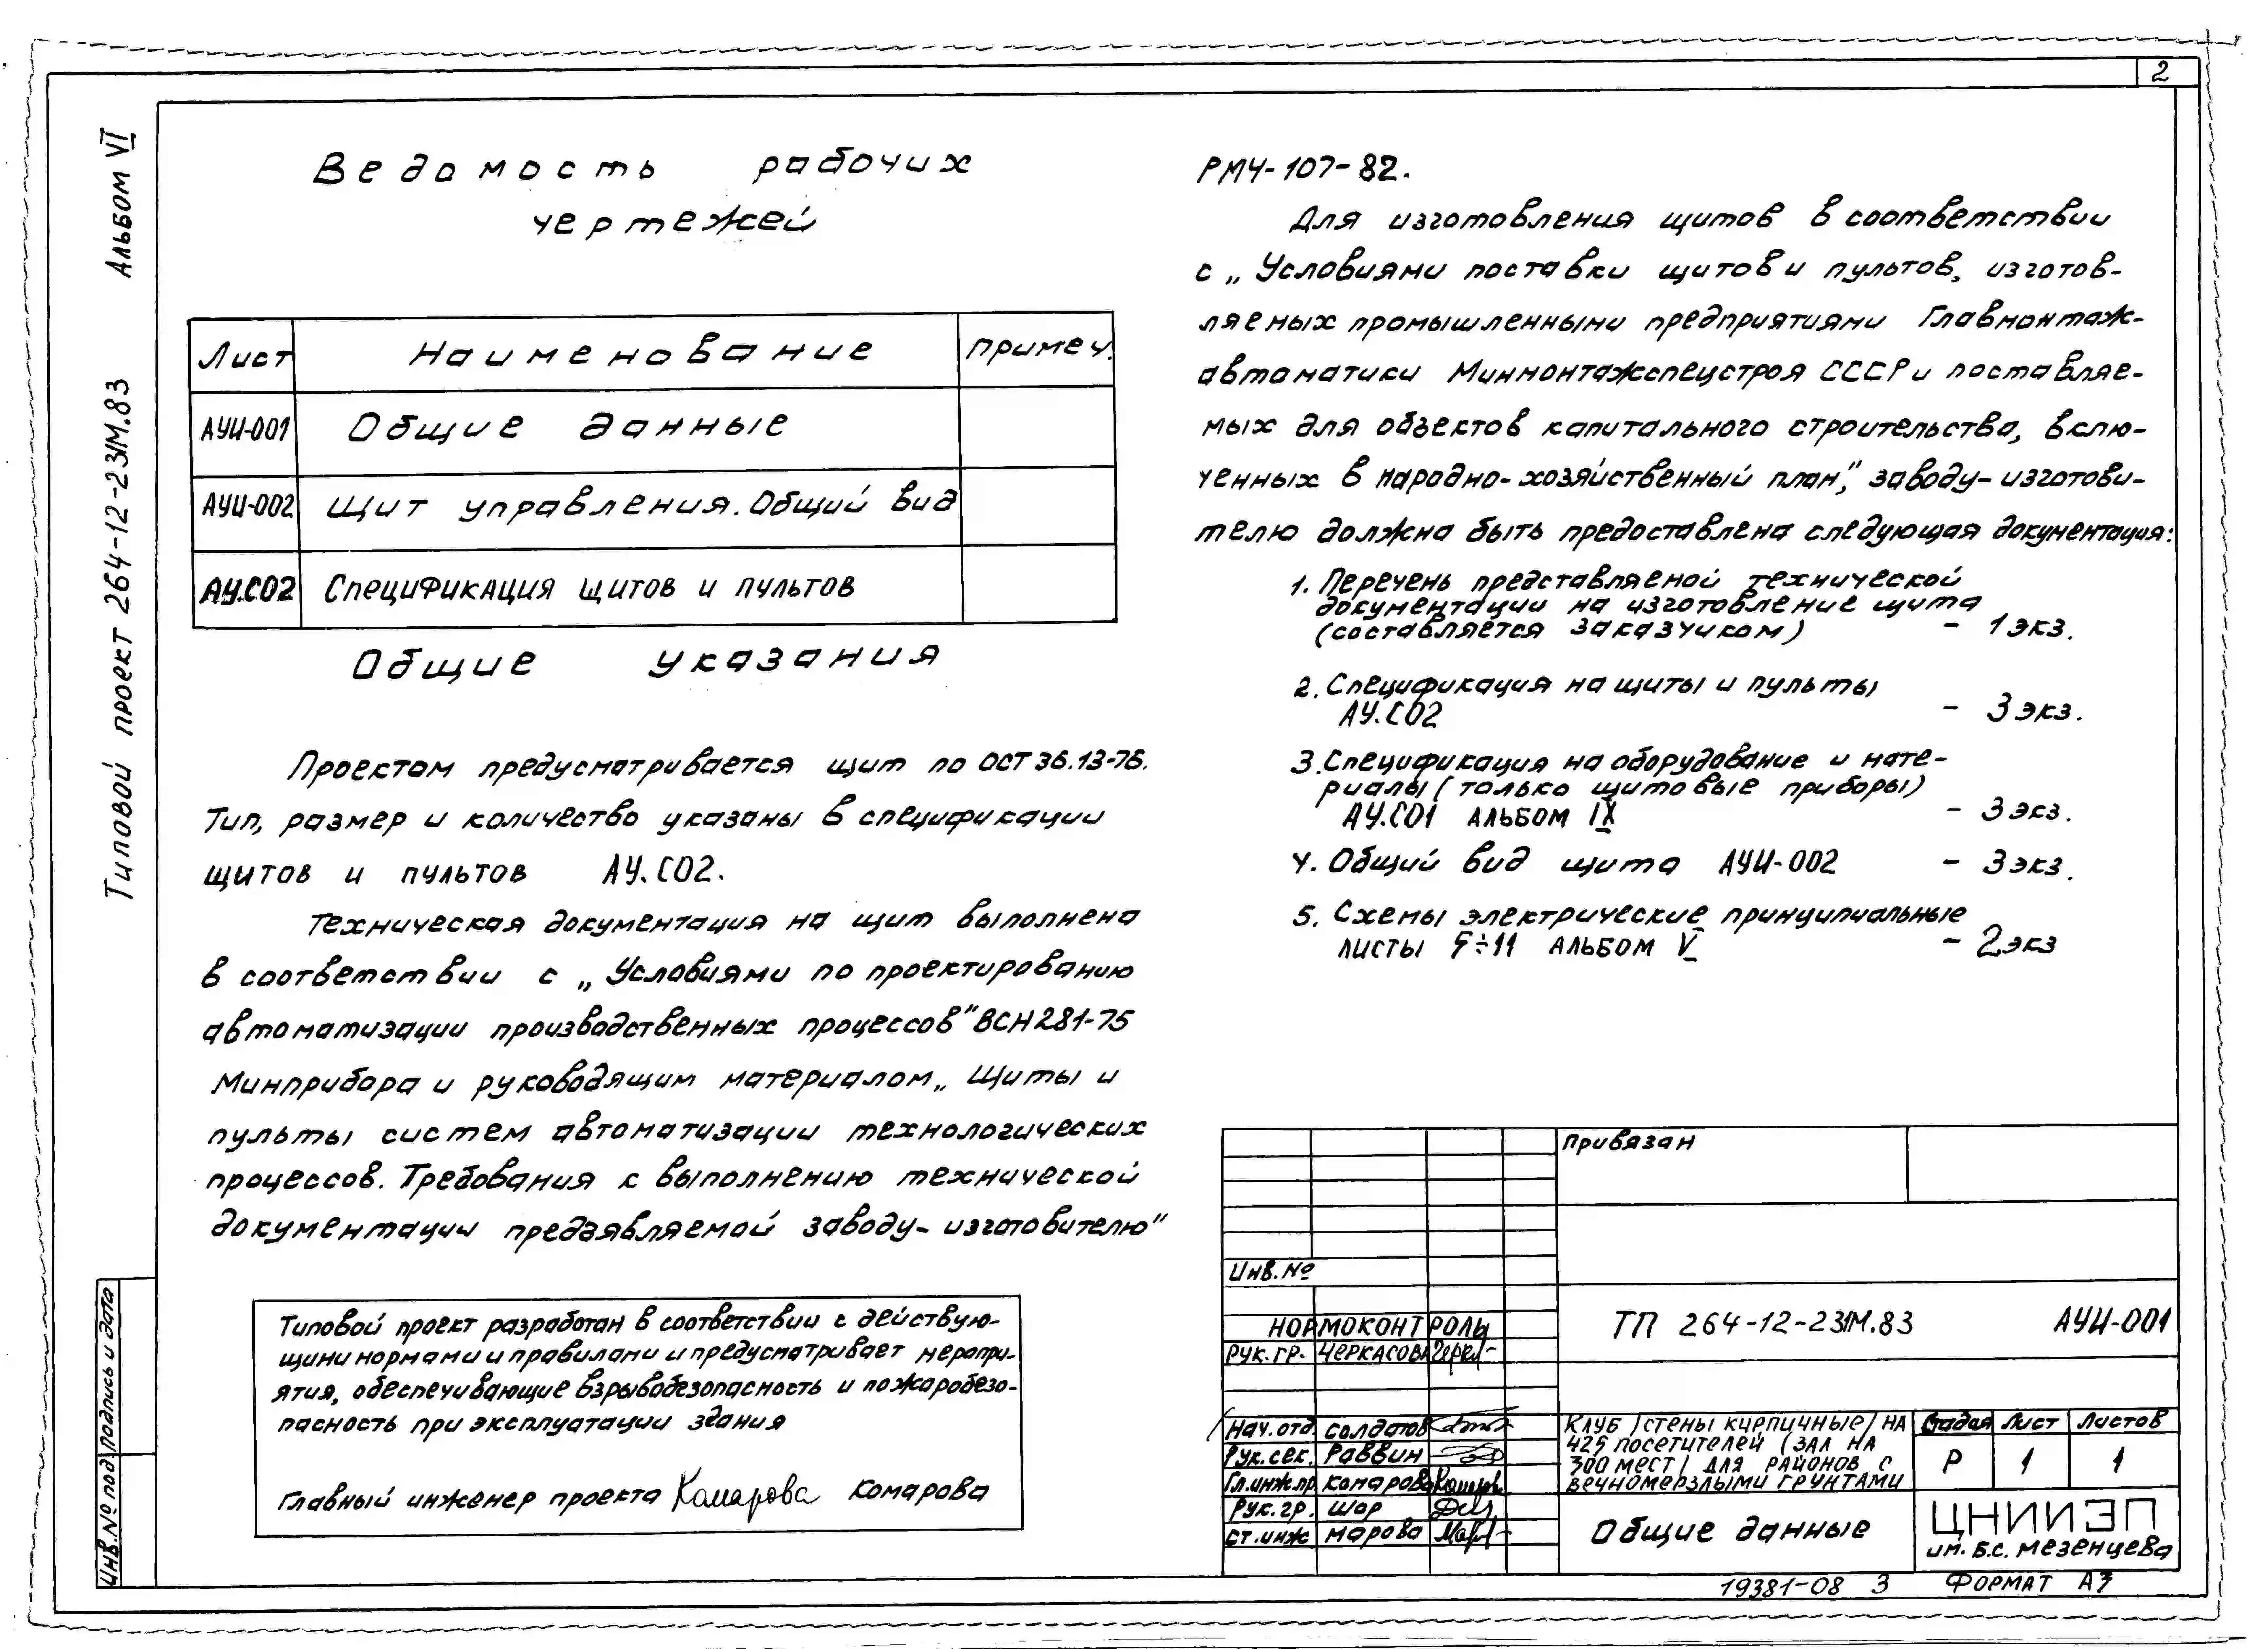 2
Типовой проект 264-12-231М.83 Альбом VI
Ведомость рабочих
чертежей
Лист Наименование примеч.
АУИ-001 Общие данные
АУИ-002 Щит управления. Общий вид
АУ.С02 Спецификация щитов и пультов
Общие указания
Проектом предусматривается щит по ОСТ 36.13-76.
Тип, размер и количество указаны в спецификации
щитов и пультов АУ.С02.
Техническая документация на щит выполнена
в соответствии с „Условиями по проектированию
автоматизации производственных процессов" ВСН 281-75
Минприбора и руководящим материалом „Щиты и
пульты систем автоматизации технологических
процессов. Требования к выполнению технической
документации предъявляемой заводу-изготовителю"
Типовой проект разработан в соответствии с действую-
щими нормами и правилами и предусматривает меропри-
ятия, обеспечивающие взрывобезопасность и пожаробезо-
пасность при эксплуатации здания
Главный инженер проекта Комарова Комарова
РМ4-107-82.
Для изготовления щитов в соответствии
с „Условиями поставки щитов и пультов, изготов-
ляемых промышленными предприятиями Главмонтаж-
автоматики Минмонтажспецстроя СССР и поставляе-
мых для объектов капитального строительства, вклю-
ченных в народно-хозяйственный план", заводу-изготови-
телю должна быть предоставлена следующая документация:
1. Перечень представляемой технической
документации на изготовление щита
(составляется заказчиком) - 1 экз.
2. Спецификация на щиты и пульты
АУ.С02 - 3 экз.
3. Спецификация на оборудование и мате-
риалы (только щитовые приборы)
АУ.С01 альбом IX - 3 экз.
4. Общий вид щита АУИ-002 - 3 экз.
5. Схемы электрические принципиальные
листы 5÷11 альбом V - 2 экз
Привязан
Инв.№
Нормоконтроль
Рук.гр. Черкасова
ТП 264-12-231М.83 АУИ-001
Нач.отд. Солдатов
Рук.сек. Раввин
Гл.инж.пр. Комарова
Рук.гр. Шор
Ст.инж Марова
Клуб /стены кирпичные/ на
425 посетителей (зал на
300 мест) для районов с
вечномерзлыми грунтами
Стадия Лист Листов
Р 1 1
Общие данные
ЦНИИЭП
им. Б.С. Мезенцева
Инв.№ под. Подпись и дата
19381-08 3 Формат А3